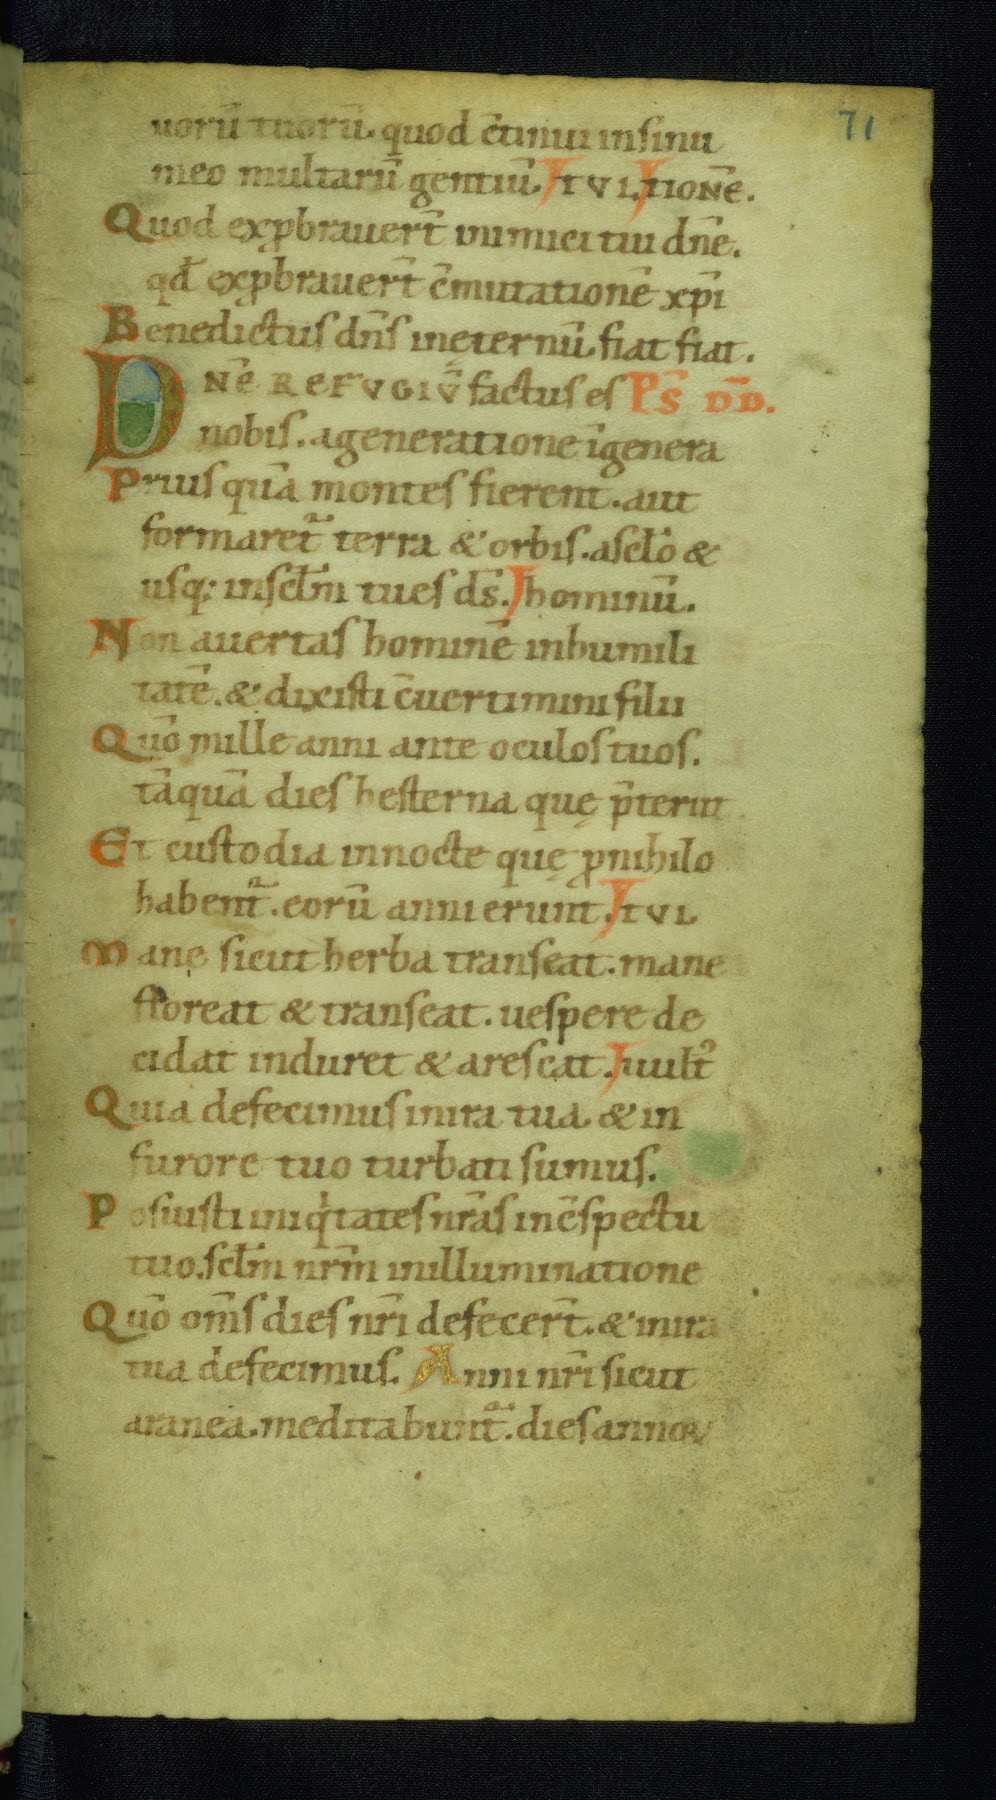 71
uorū tuorū. quod c̄tinui insinu
meo multarū gentiū. tui. tionē.
Quod exp̱brauert̄ inimici tui dn̄e.
qd̄ exp̱brauert̄ c̄mutationē xp̄i
Benedictus dn̄s inęternū. fiat fiat.
DNĒ REFUGIŪ factus es PS̄ DD̄.
nobis. ageneratione īgenera
Priusquā montes fierent. aut
formaret᷑ terra &́ orbis. asclo̅ &
usq; inscl̄m tues ds̄. hominū.
Non auertas hominē inhumili
tatē. &́ dixisti c̄uertimini filii
Quō mille anni ante oculostuos.
tāquā dies hesterna quę p̄teriit
Et custodia innocte quę p̱nihilo
habent᷑. eorū anni erunt. TUI
Mane sicut herba transeat. mane
floreat & transeat. uespere de
cidat induret & arescat. uult᷑
Quia defecimus inira tua. & in
furore tuo turbati sumus.
Posuisti iniqͥtates nr̄as inc̄spectu
tuo. scl̄m nr̄m inilluminatione
Quō om̄s dies nr̄i defecert̄. &́ inira
tua defecimus. Anni nr̄i sicut
aranea. meditabunt᷑. dies annoꝝ